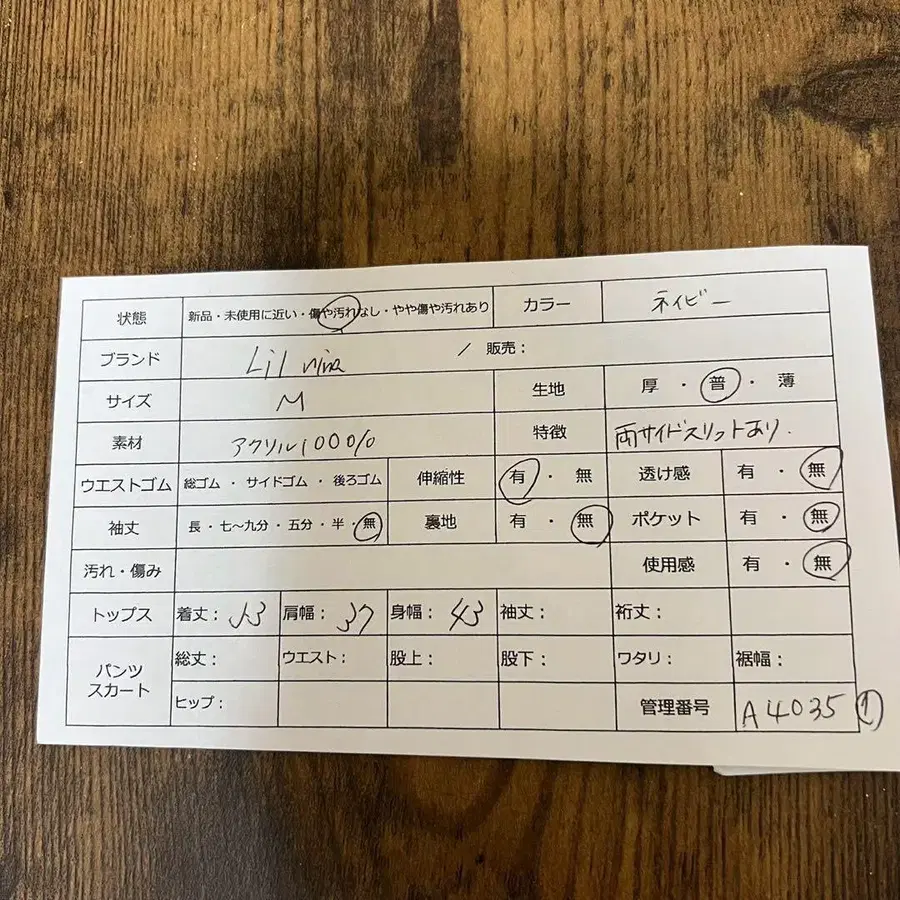 状態 新品・未使用に近い・傷や汚れなし・やや傷や汚れあり カラー ネイビー
ブランド Lil nina / 販売：
サイズ M 生地 厚 ・ 普 ・ 薄
素材 アクリル100% 特徴 両サイドスリットあり.
ウエストゴム 総ゴム ・ サイドゴム ・ 後ろゴム 伸縮性 有 ・ 無 透け感 有 ・ 無
袖丈 長・七～九分・五分・半・無 裏地 有 ・ 無 ポケット 有 ・ 無
汚れ・傷み 使用感 有 ・ 無
トップス 着丈：53 肩幅：37 身幅：43 袖丈： 裄丈：
パンツ スカート 総丈： ウエスト： 股上： 股下： ワタリ： 裾幅：
ヒップ： 管理番号 A4035 ①